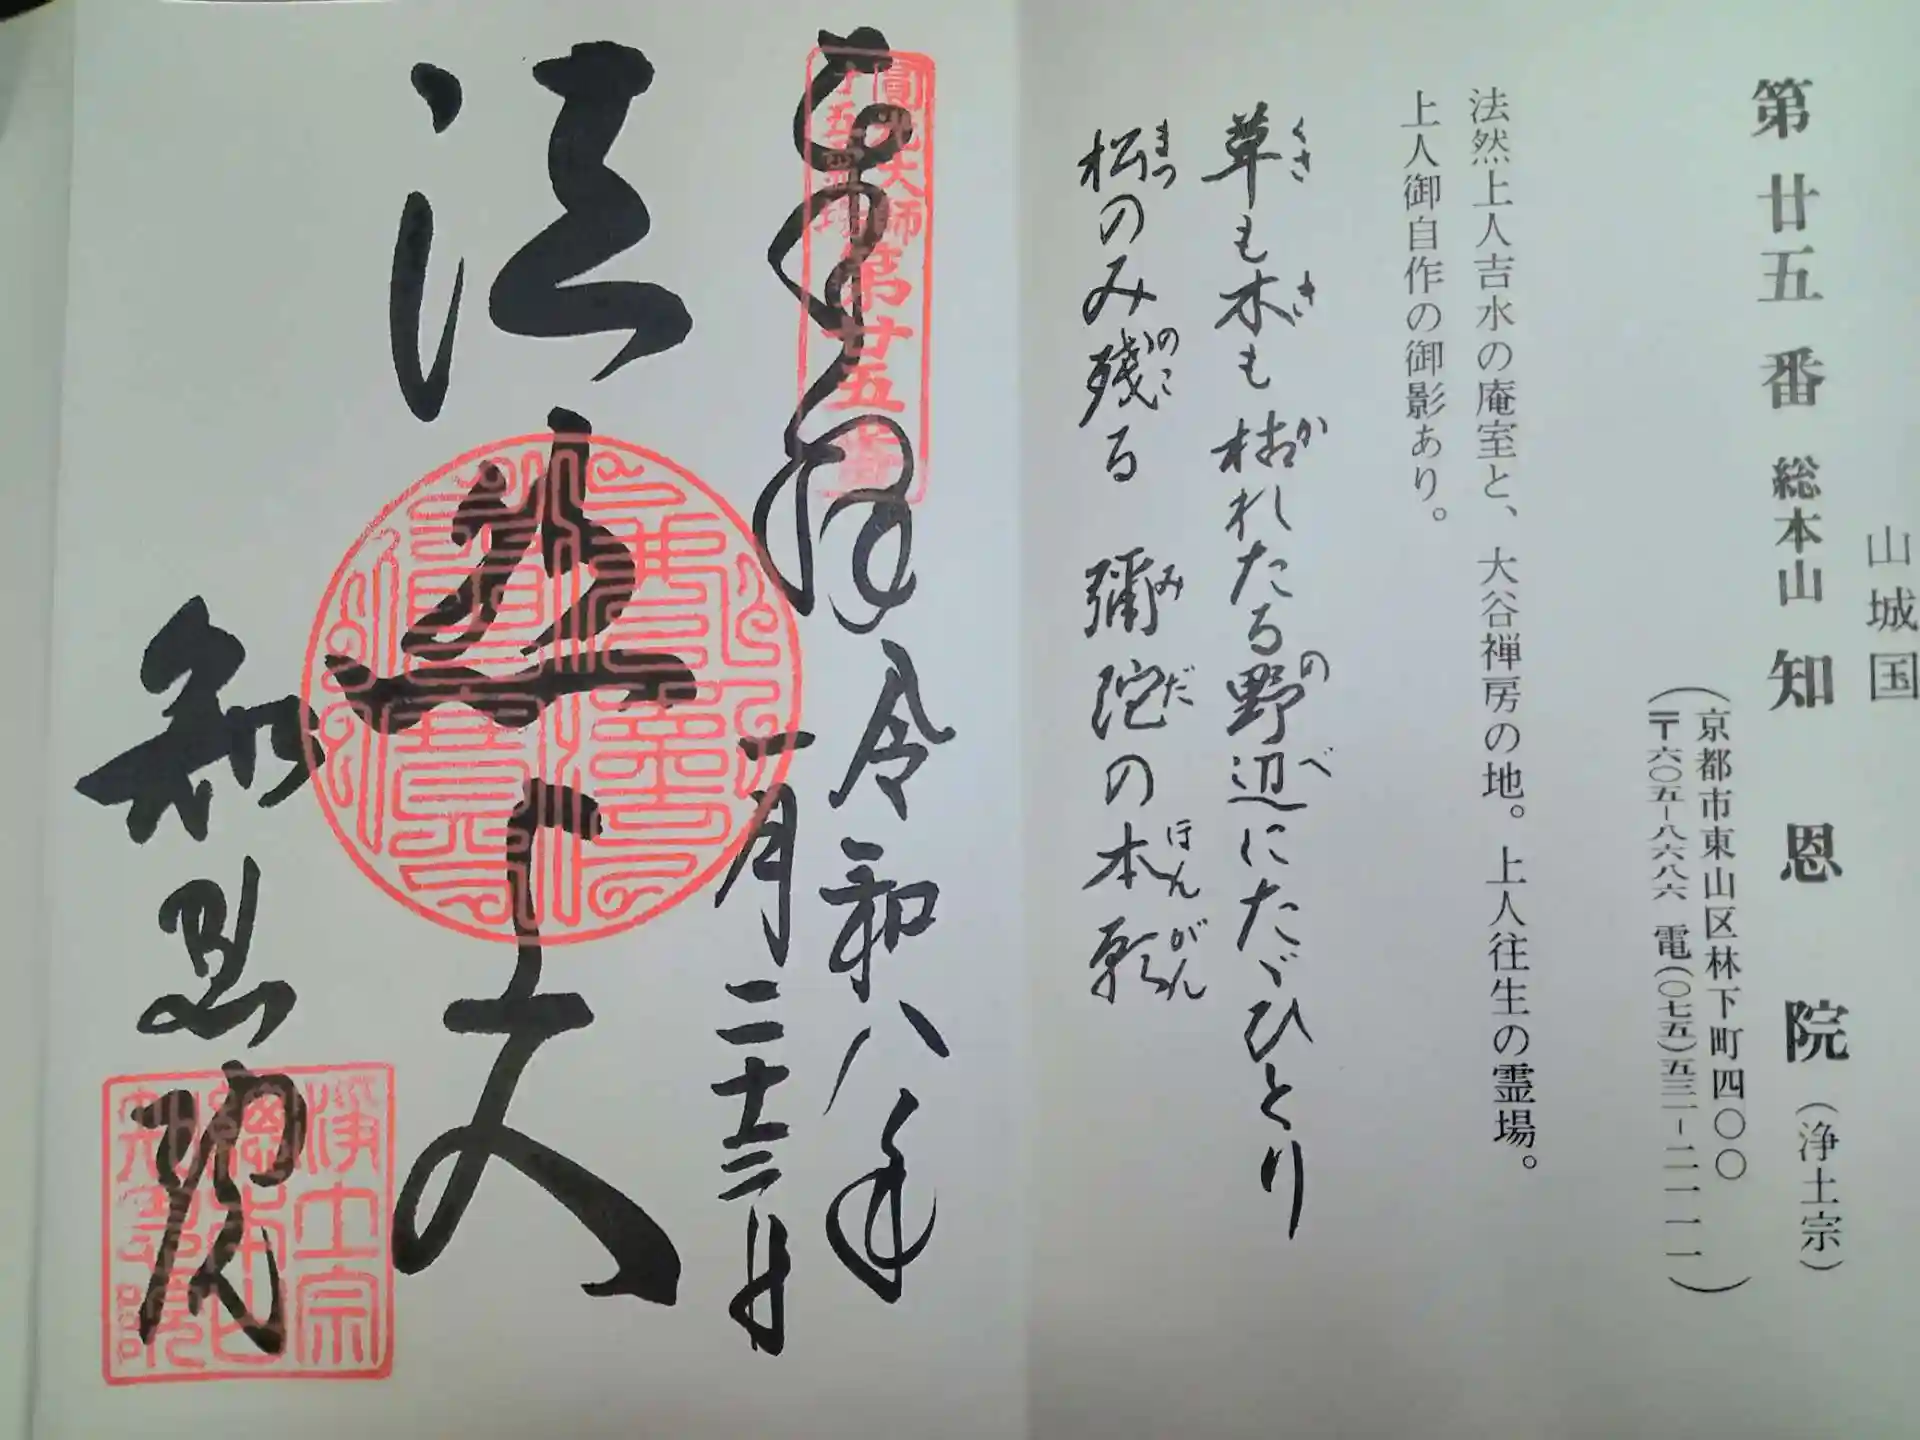 山城国
第廿五番 総本山 知恩院（浄土宗）
（京都市東山区林下町四〇〇
〒六〇五-八六八六 電(〇七五)五三一-二一一一）
法然上人吉水の庵室と、大谷禅房の地。上人往生の霊場。
上人御自作の御影あり。
草も木も枯れたる野辺にたゞひとり
くさ き か の べ
松のみ残る 彌陀の本願
まつ のこ み だ ほん がん
奉拝 令和八年
一月二十二日
圓光大師
二十五霊場
第廿五番
法然上人
知恩院
浄土宗
總本山
知恩院